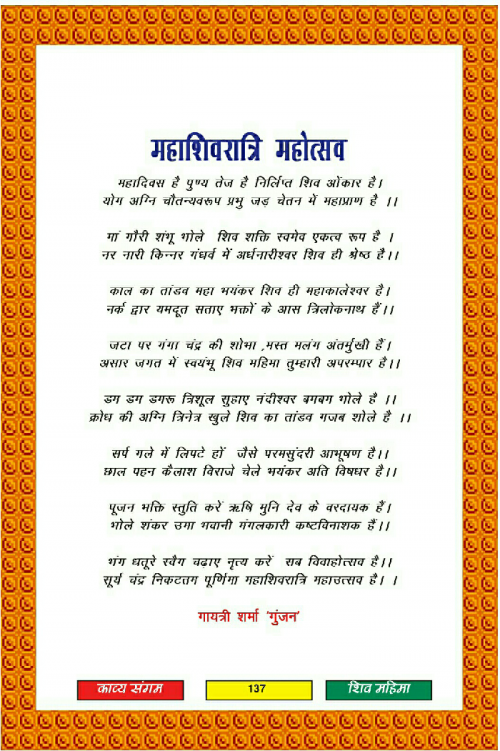 महाशिवरात्रि महोत्सव
महादिवस है पुण्य तेज है निर्लिप्त शिव ओंकार है।
योग अग्नि चौतन्यवरूप प्रभु जड़ चेतन में महाप्राण है ।।
गां गौरी शंभू भोले शिव शक्ति स्वगेव एकत्व रूप है ।
नर नारी किन्नर गंधर्व में अर्धनारीश्वर शिव ही श्रेष्ठ है।।
काल का तांडव महा भयंकर शिव ही महाकालेश्वर है।
नर्क द्वार यमदूत सताए भक्तों के आस त्रिलोकनाथ हैं।।
जटा पर गंगा चंद्र की शोभा ,मस्त मलंग अंतर्मुखी हैं।
असार जगत में स्वयंभू शिव महिमा तुम्हारी अपरम्पार है।।
डग डग डगरू त्रिशूल सुहाए नंदीश्वर बगबग भोले है ।
क्रोध की अग्नि त्रिनेत्र खुले शिव का तांडव गजब शोले है ।।
सर्प गले में लिपटे हों जैसे परमसुंदरी आभूषण है।।
छाल पहन कैलाश विराजे चेले भयंकर अति विषधर है।।
पूजन भक्ति स्तुति करें ऋषि मुनि देव के वरदायक हैं।
भोले शंकर उगा भवानी गंगलकारी कष्टविनाशक हैं।।
भंग धतूरे स्वैग चढ़ाए नृत्य करें सब विवाहोत्सव है।।
सूर्य चंद्र निकटतग पूर्णिगा महाशिवरात्रि महाउत्सव है। ।
गायत्री शर्मा 'गुंजन'
काव्य संगम
137
शिव महिमा